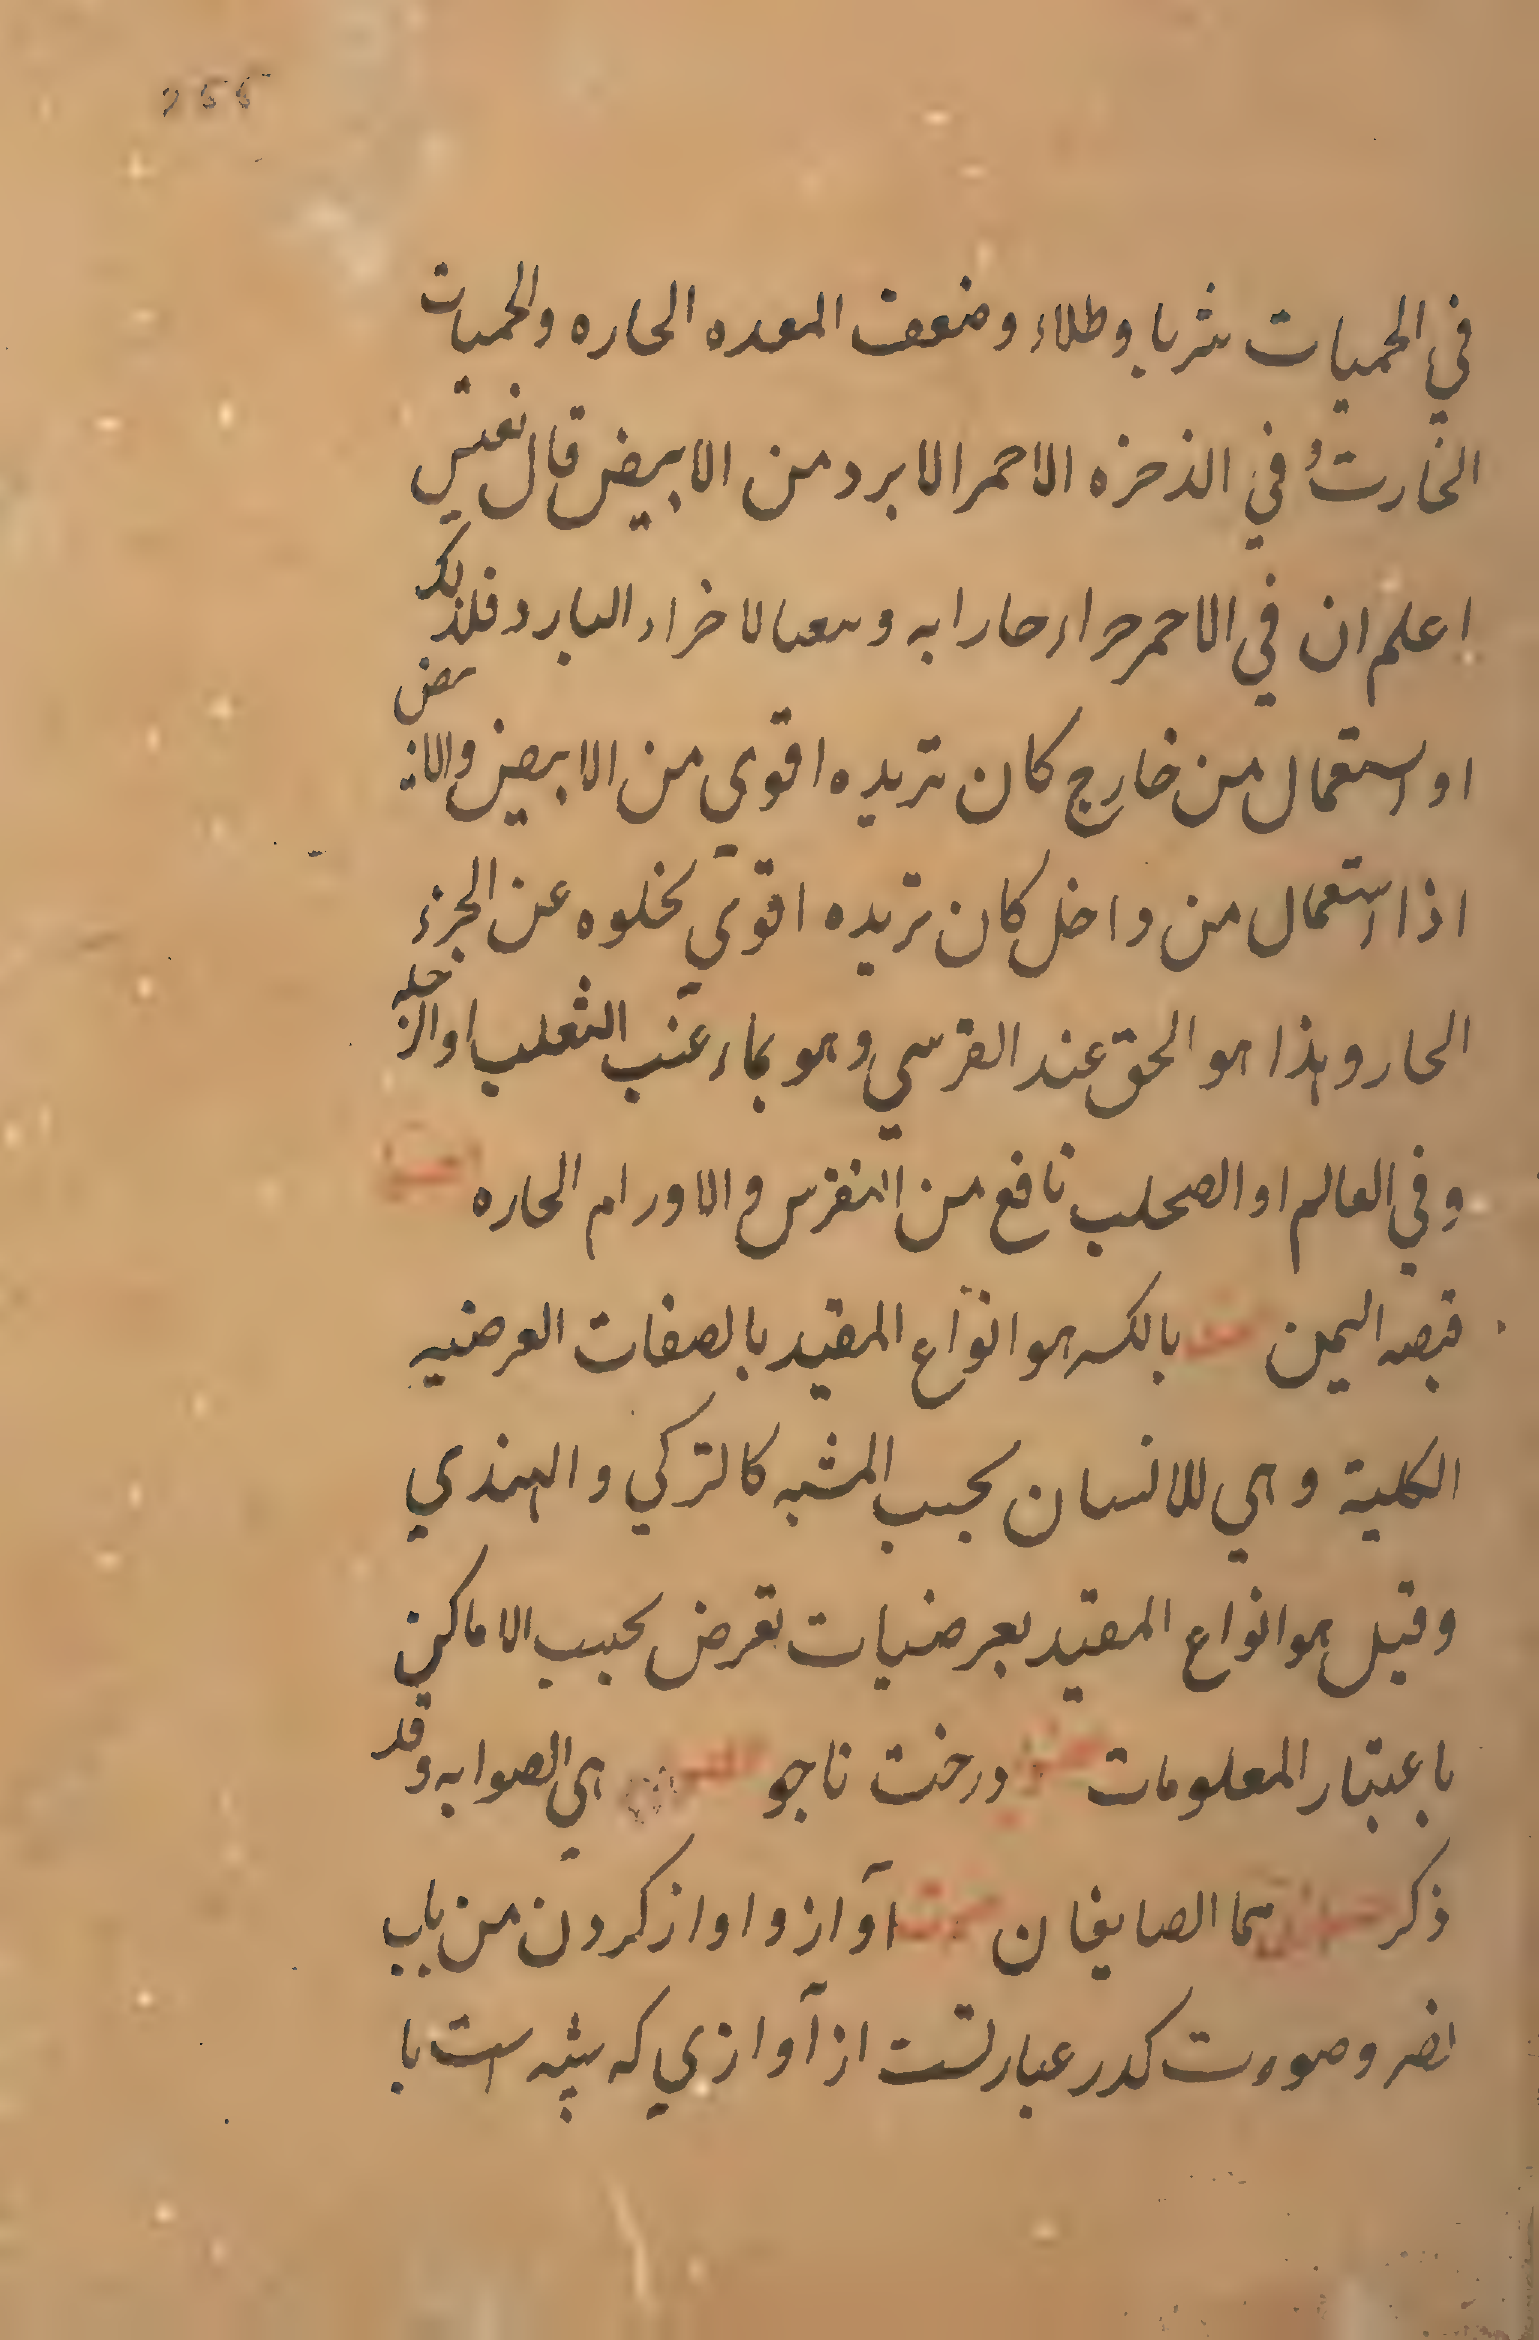 ۲۵۵
في الحميات شربا وطلاء وضعف المعده الحاره والحميات
في الذخزه الاحمر الابرد من الابيض قال نفيس
اعلم ان في الاحمر جراء حارا به والاخراء البارد فلذلك
او استعمال من خارج كان تتريده اقوي من الابيض والابيض
اذا استعمال من داخل كان تريده اقوي لخلوه عن الجزء
الحار وهذا هو الحق عند القرسي وهو بماء عنب الثعلب او
وفي العالم او الصحلب نافع من النقرس والاورام الحاره
قبصه اليمن بالكسر هو انواع المقيد بالصفات العرضيه
الكلية وهي للانسان بحسب المشبه كالتركي والهندي
وقيل هو انواع المقيد بعرضيات تعرض بحسب الاماكن
باعتبار المعلومات درخت ناجو هي الصوابه وقد
ذكر هما الصايغان آواز و اواز كردن من باب
نصر وصوت كدر عبارتست از آوازي كه شبيه است با